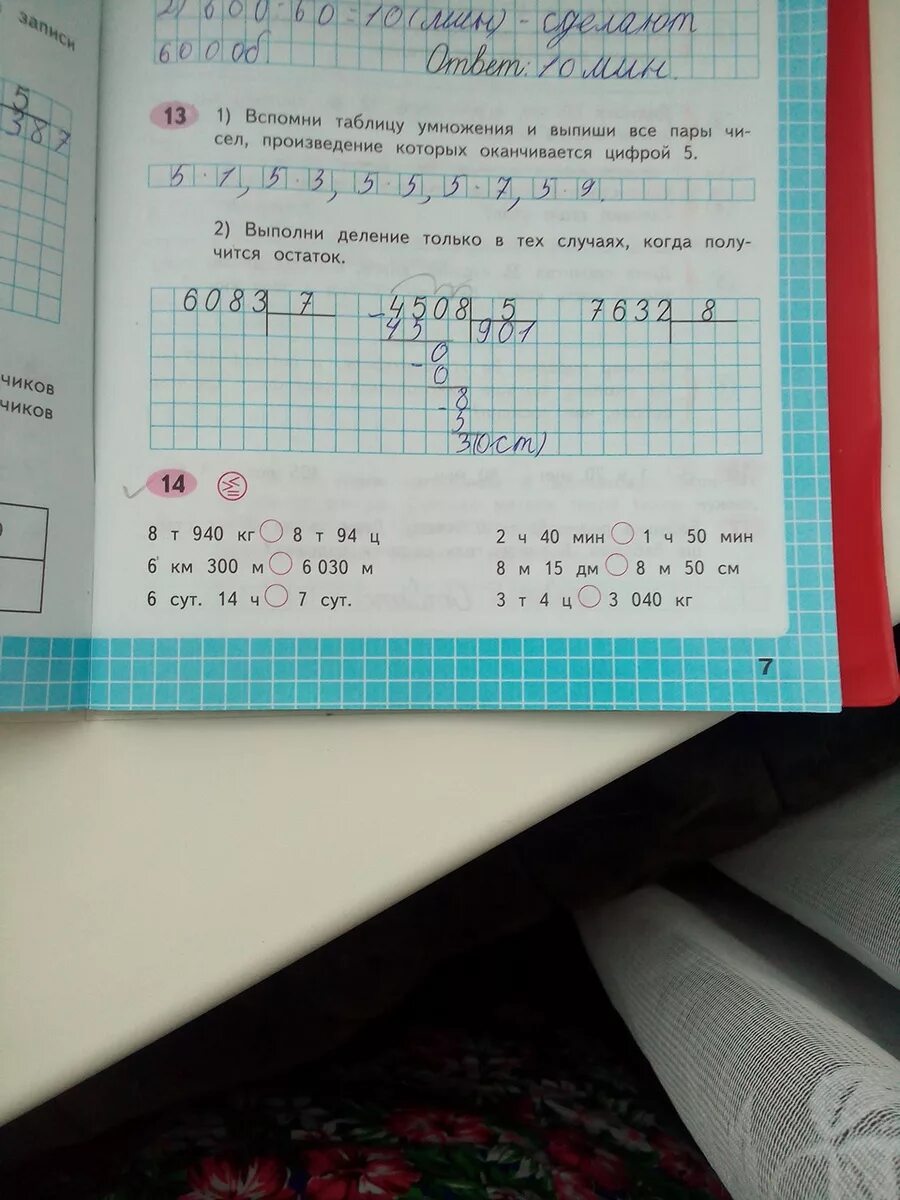 записи
5
387
чиков
чиков
2) 600:60=10(мин) - сделают
600 об.
Ответ: 10 мин.
13 1) Вспомни таблицу умножения и выпиши все пары чи-
сел, произведение которых оканчивается цифрой 5.
5·1, 5·3, 5·5, 5·7, 5·9.
2) Выполни деление только в тех случаях, когда полу-
чится остаток.
6083 7 -4508 5 7632 8
45 901
0
-0
8
-5
3(ост)
14
8 т 940 кг 8 т 94 ц 2 ч 40 мин 1 ч 50 мин
6 км 300 м 6 030 м 8 м 15 дм 8 м 50 см
6 сут. 14 ч 7 сут. 3 т 4 ц 3 040 кг
7